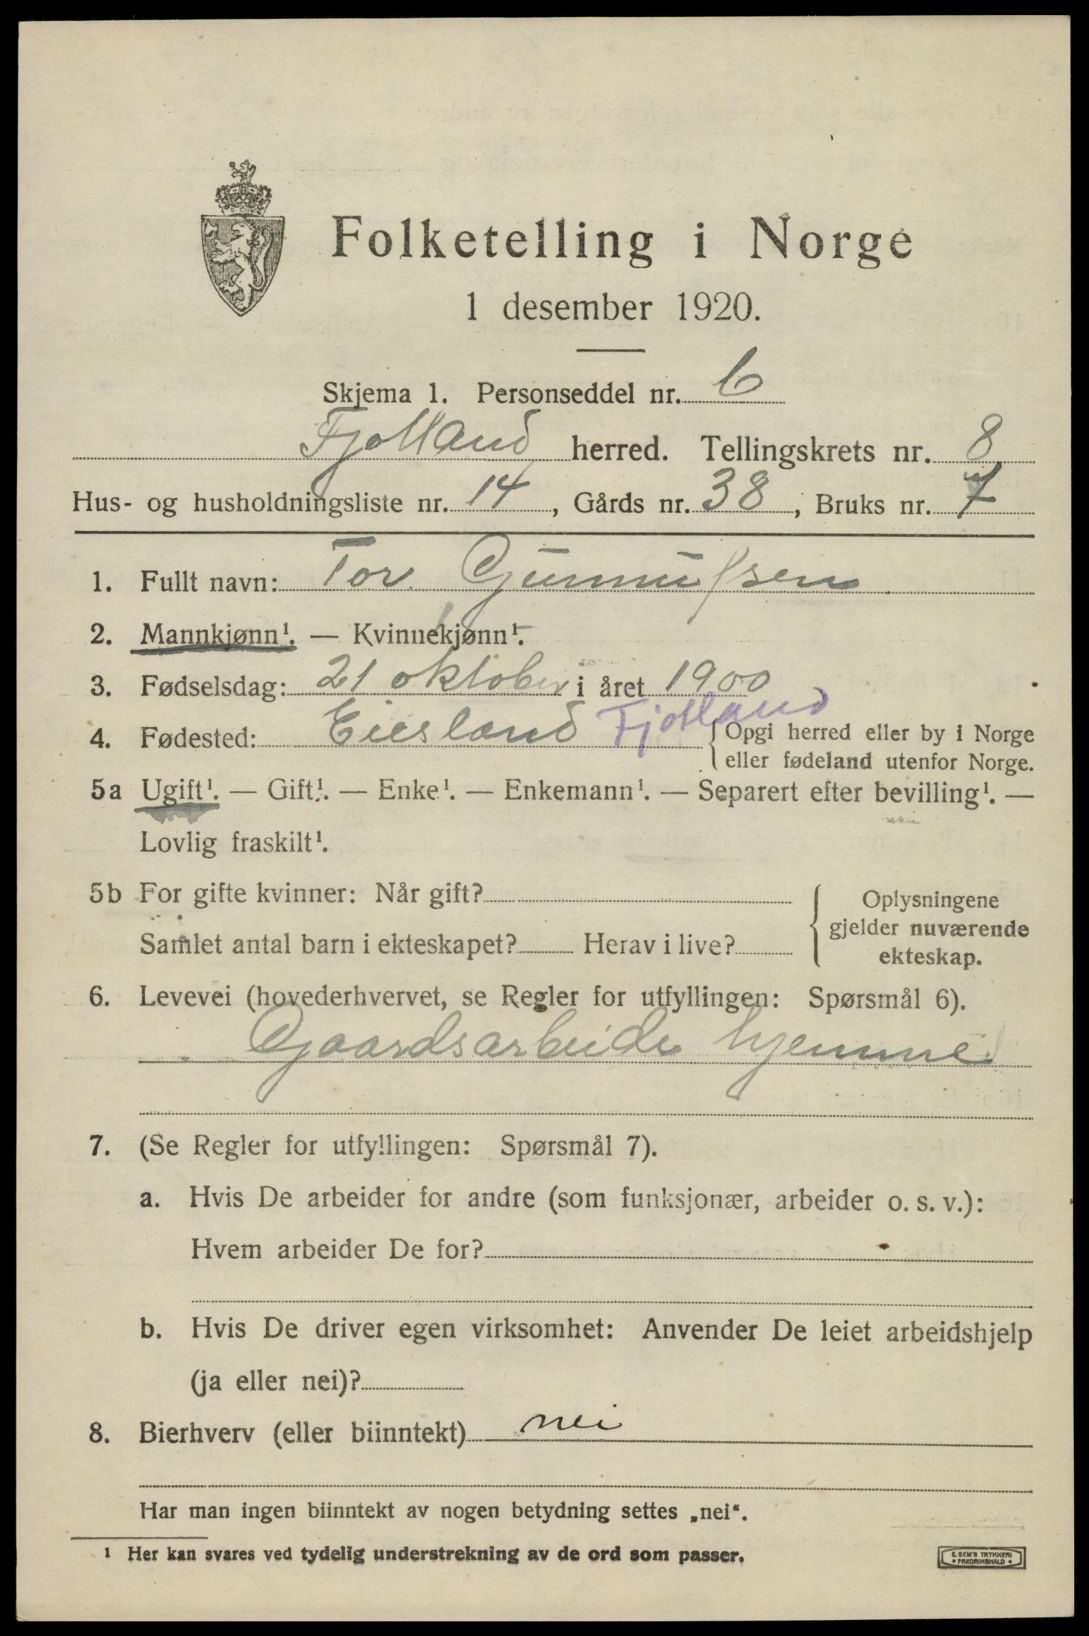 Folketelling i Norge
1 desember 1920.
Skjema 1. Personseddel nr. 6
Fjotland herred. Tellingskrets nr. 8
Hus- og husholdningsliste nr. 14, Gårds nr. 38, Bruks nr. 7
1. Fullt navn: Tor Gunnufsen
2. Mannkjønn¹. — Kvinnekjønn¹.
3. Fødselsdag: 21 oktober i året 1900
4. Fødested: Eiesland Fjotland { Opgi herred eller by i Norge
eller fødeland utenfor Norge.
5a Ugift¹. — Gift¹. — Enke¹. — Enkemann¹. — Separert efter bevilling¹. —
Lovlig fraskilt¹.
5b For gifte kvinner: Når gift?
Samlet antal barn i ekteskapet? Herav i live?
Oplysningene
gjelder nuværende
ekteskap.
6. Levevei (hovederhvervet, se Regler for utfyllingen: Spørsmål 6).
Gaardsarbeide hjemme
7. (Se Regler for utfyllingen: Spørsmål 7).
a. Hvis De arbeider for andre (som funksjonær, arbeider o. s. v.):
Hvem arbeider De for?
b. Hvis De driver egen virksomhet: Anvender De leiet arbeidshjelp
(ja eller nei)?
8. Bierhverv (eller biinntekt) nei
Har man ingen biinntekt av nogen betydning settes „nei“.
¹ Her kan svares ved tydelig understrekning av de ord som passer.
E. SEM'S TRYKKERI
• FREDRIKSHALD •